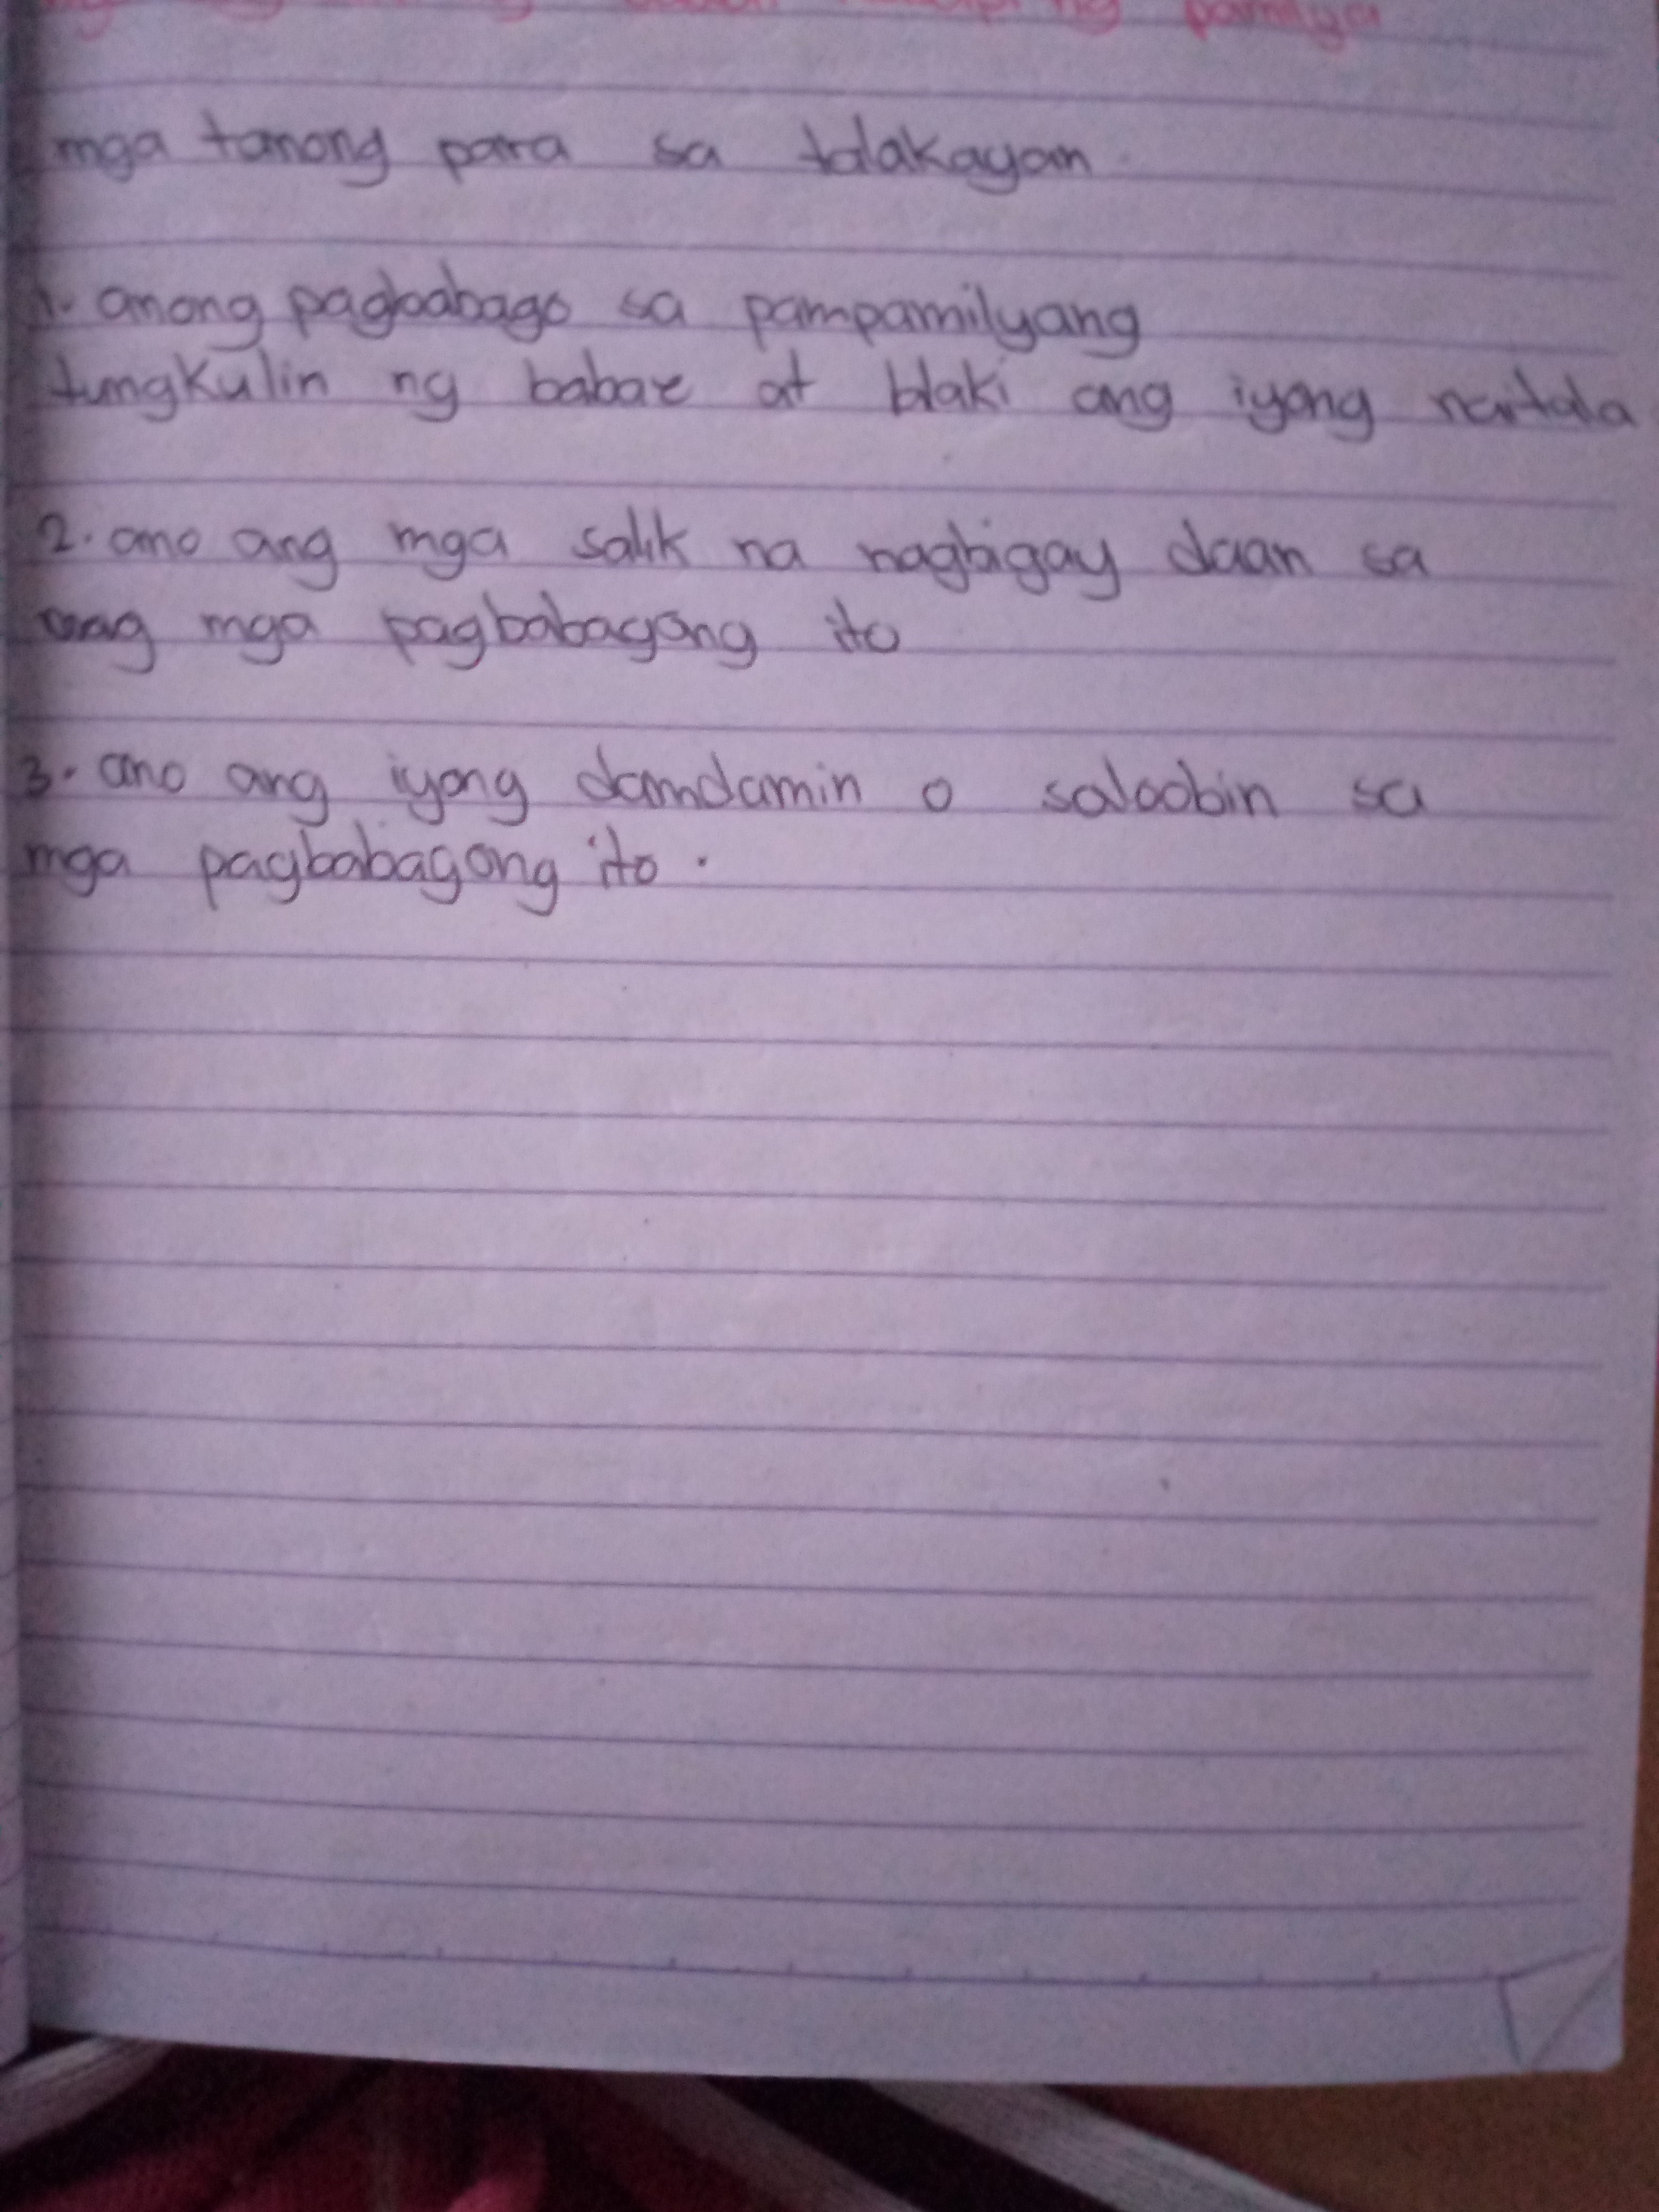 ng pamilya
mga tanong para sa talakayan
1. anong pagbabago sa pampamilyang
tungkulin ng babae at lalaki ang iyong naitala
2. ano ang mga salik na nagbigay daan sa
mga pagbabagong ito
3. ano ang iyong damdamin o saloobin sa
mga pagbabagong ito.